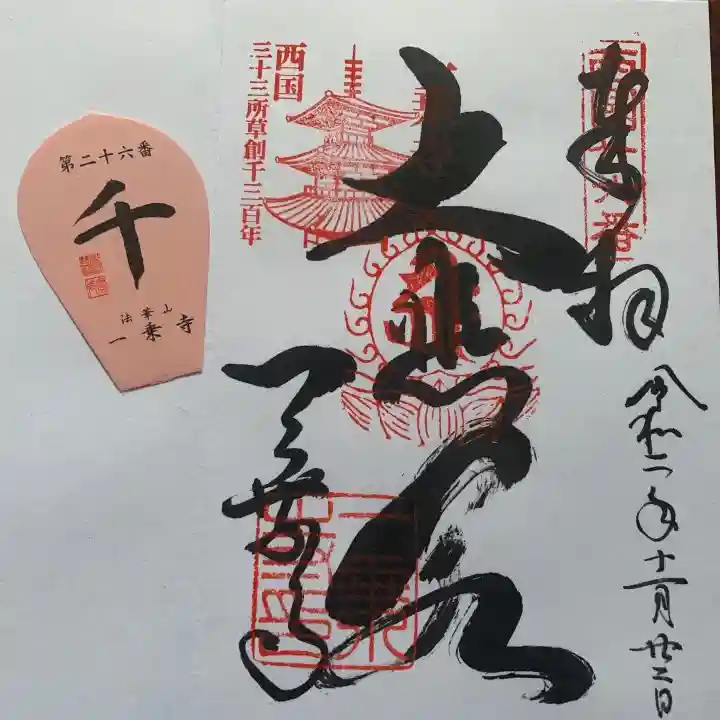 奉拝
令和二年十一月廿二日
大悲閣
一乗寺
西国
三十三所草創千三百年
第二十六番
千
法華山
一乗寺